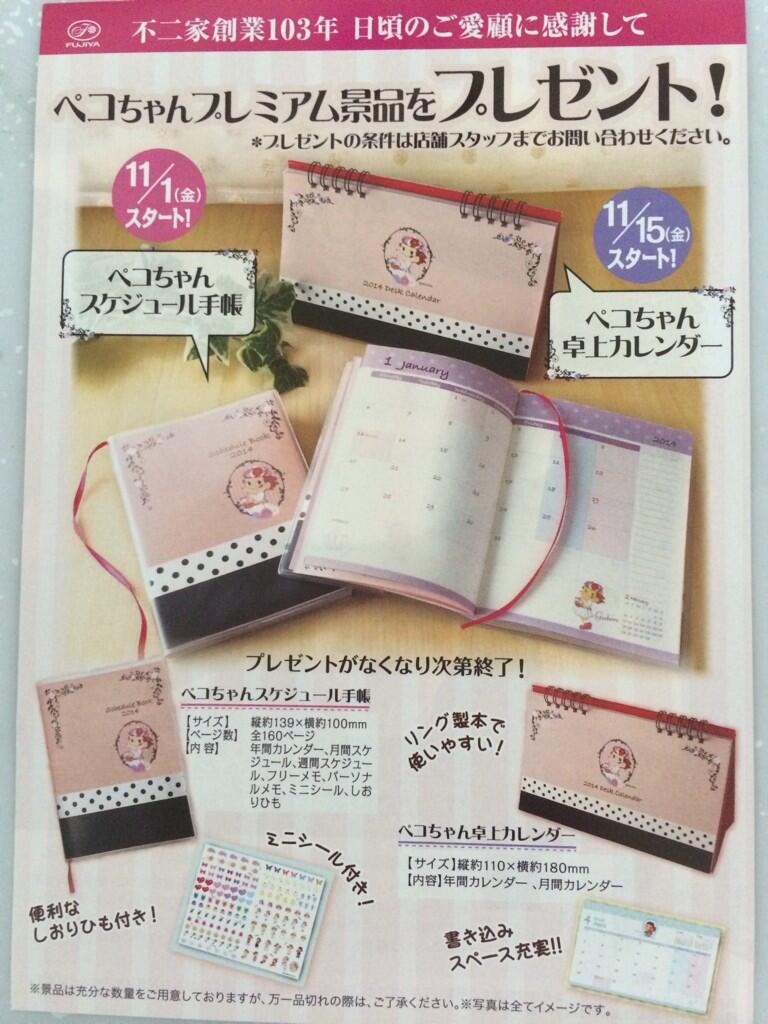 FUJIYA
不二家創業103年 日頃のご愛顧に感謝して
ペコちゃんプレミアム景品をプレゼント!
*プレゼントの条件は店舗スタッフまでお問い合わせください。
11/1(金)
スタート!
ペコちゃん
スケジュール手帳
11/15(金)
スタート!
ペコちゃん
卓上カレンダー
2014 Desk Calendar
1 January
2014
Schedule Book
2014
プレゼントがなくなり次第終了!
ペコちゃんスケジュール手帳
【サイズ】 縦約139×横約100mm
【ページ数】 全160ページ
【内 容】 年間カレンダー、月間スケ
ジュール、週間スケジュー
ル、フリーメモ、パーソナ
ルメモ、ミニシール、しお
りひも
Schedule Book
2014
便利な
しおりひも付き!
ミニシール付き!
リング製本で
使いやすい!
2014 Desk Calendar
ペコちゃん卓上カレンダー
【サイズ】縦約110×横約180mm
【内容】年間カレンダー、月間カレンダー
書き込み
スペース充実!!
※景品は充分な数量をご用意しておりますが、万一品切れの際は、ご了承ください。※写真は全てイメージです。